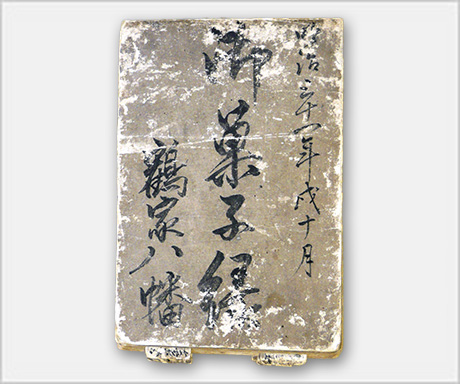 明治三十一年戌十月
御菓子
鶴家八幡